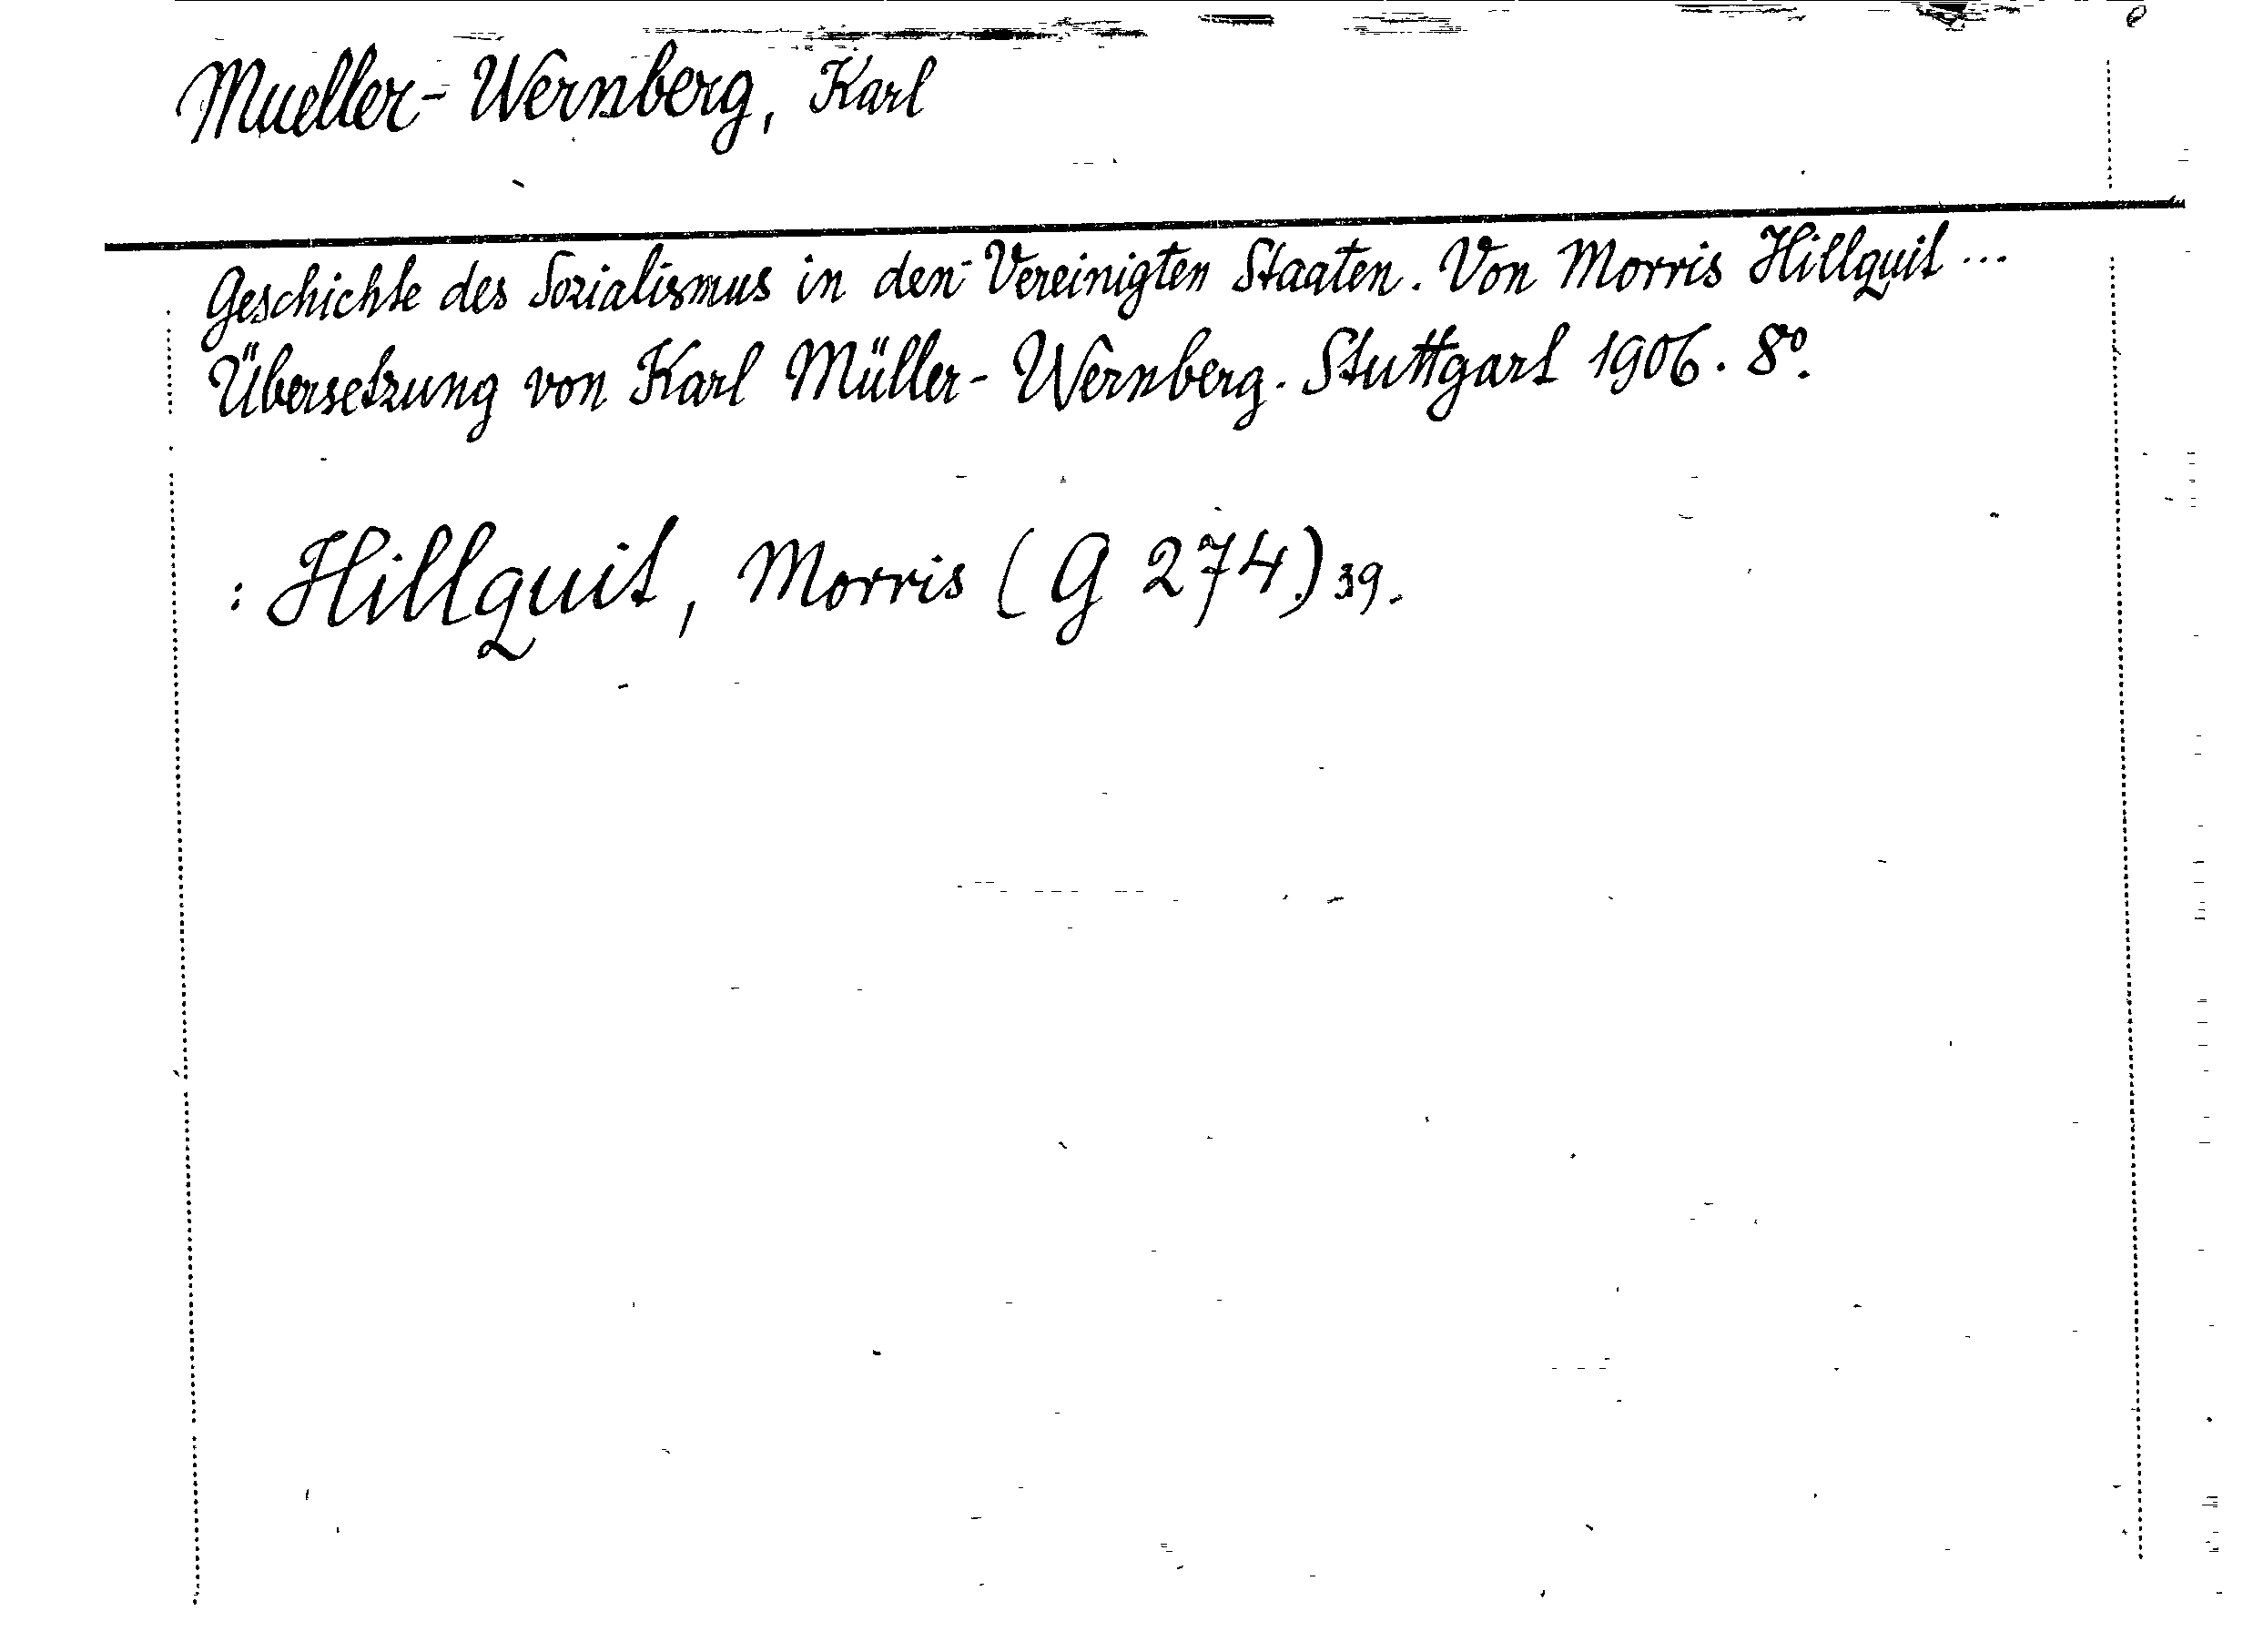 Mueller-Wernberg, Karl
Geschichte des Sozialismus in den Vereinigten Staaten. Von Morris Hillquit...
Übersetzung von Karl Müller-Wernberg. Stuttgart 1906. 8º.
: Hillquit, Morris (G 274.) 39.